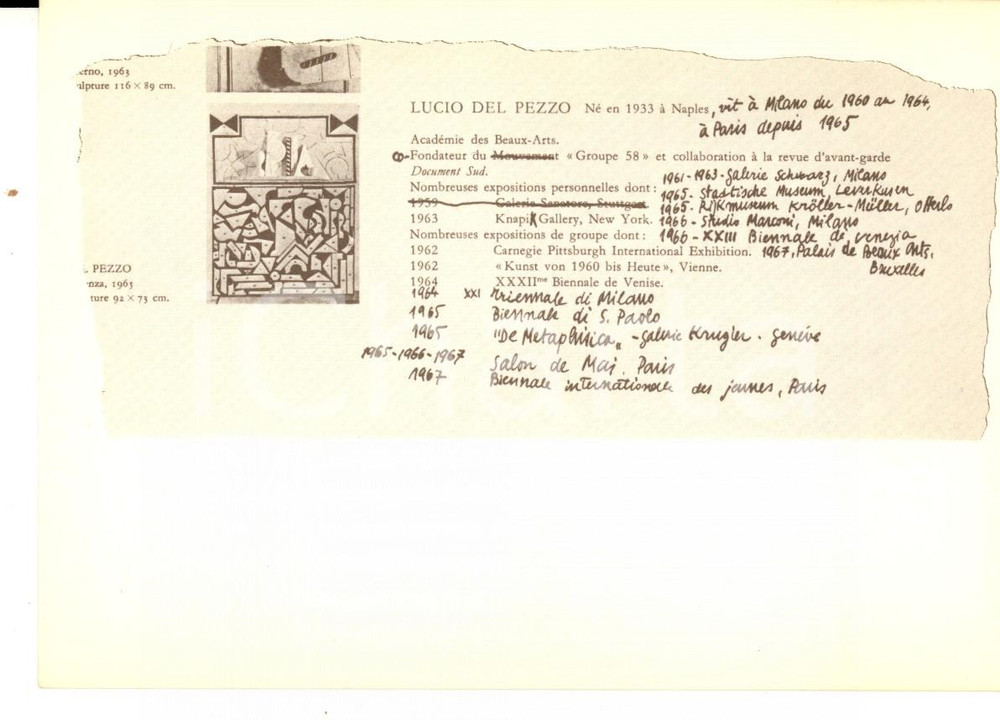 erno, 1963
lpture 116 × 89 cm.
LUCIO DEL PEZZO Né en 1933 à Naples, vit à Milano du 1960 au 1964,
à Paris depuis 1965
Académie des Beaux-Arts.
Co-Fondateur du Mouvement « Groupe 58 » et collaboration à la revue d'avant-garde
Document Sud.
1961-1963-Galerie Schwarz, Milano
Nombreuses expositions personnelles dont :
1965. Staatische Museum, Leverkusen
1959 Galerie Senatore, Stuttgart
1965. Rijkmuseum Kröller-Müller, Otterlo
1963 Knapik Gallery, New York.
1966 - Studio Marconi, Milano
Nombreuses expositions de groupe dont :
1966 - XXIII Biennale de Venezia
1962 Carnegie Pittsburgh International Exhibition.
1967, Palais de Beaux Arts,
Bruxelles
1962 « Kunst von 1960 bis Heute », Vienne.
1964 XXXIIme Biennale de Venise.
1964 XXI Triennale di Milano
1965 Biennale di S. Paolo
1965 "De Metaphisica„ - galerie Krugier - genève
1965-1966-1967 Salon de Mai, Paris
1967 Biennale internationale des jeunes, Paris
L PEZZO
enza, 1963
ture 92 × 73 cm.